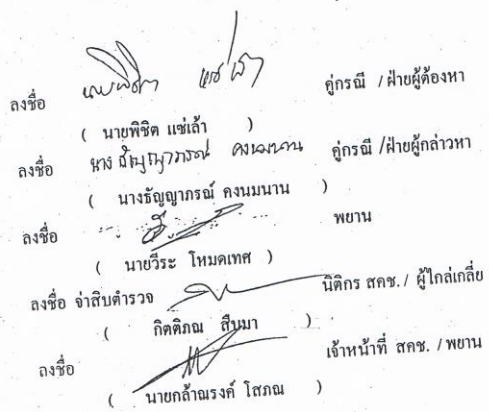 ลงชื่อ นายพิชิต แซ่เล้า คู่กรณี / ฝ่ายผู้ต้องหา
( นายพิชิต แซ่เล้า )
ลงชื่อ นาง ธัญญาภรณ์ คงนมนาน คู่กรณี /ฝ่ายผู้กล่าวหา
( นางธัญญาภรณ์ คงนมนาน )
ลงชื่อ พยาน
( นายวีระ โหมดเทศ )
ลงชื่อ จ่าสิบตำรวจ นิติกร สคช. / ผู้ไกล่เกลี่ย
( กิตติภณ สืบมา )
ลงชื่อ เจ้าหน้าที่ สคช. / พยาน
( นายกล้าณรงค์ โสภณ )